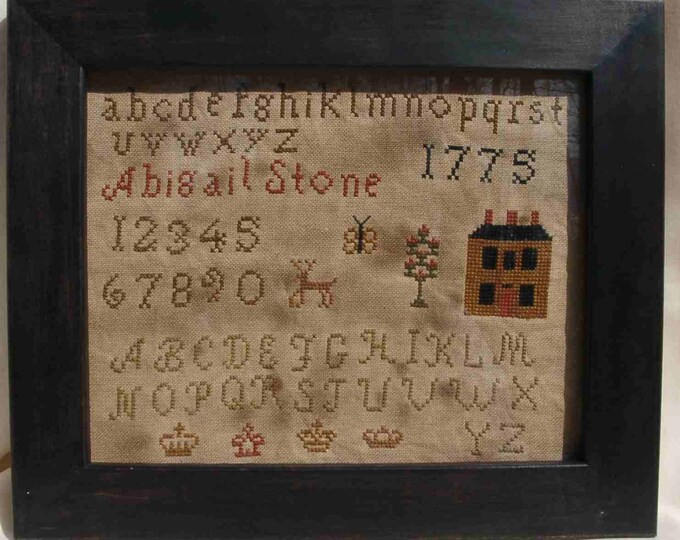 abcdefghiklmnopqrst
uvwxyz
1775
Abigail Stone
12345
67890
ABCDEFGHIKLM
NOPQRSTUVWX
YZ